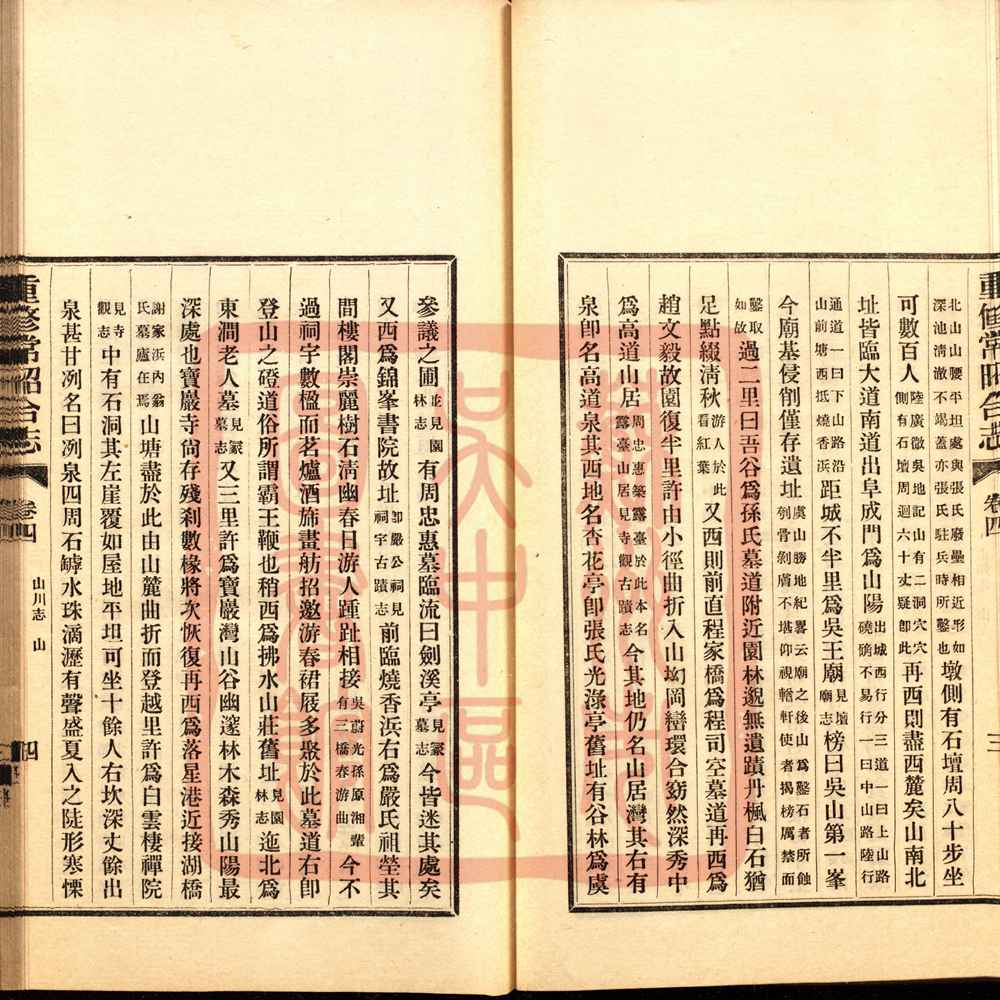 重修常昭合志
卷四
三
北山山腰平坦處與張氏廢壘相近形如
深池淸澈不竭蓋亦張氏駐兵時所鑿也
墩側有石壇周八十步坐
可數百人
陸廣微吳地記山有二洞穴穴
側有石壇周迴六十丈疑卽此
再西則盡西麓矣山南北
址皆臨大道南道出阜成門爲山陽
出城西行分三道一曰上山路
磽确不易行一曰中山路陸行
通道一曰下山路沿
山前塘西抵燒香浜
距城不半里爲吳王廟
見壇
廟志
榜曰吳山第一峯
今廟基侵削僅存遺址
虞山勝地紀畧云廟之後山爲鑿石者所蝕
刳骨剝膚不堪仰視轄軒使者揭榜厲禁而
鑿取
如故
過二里曰吾谷爲孫氏墓道附近園林邈無遺蹟丹楓白石猶
足點綴淸秋
游人於此
看紅葉
又西則前直程家橋爲程司空墓道再西爲
趙文毅故園復半里許由小徑曲折入山坳岡巒環合窈然深秀中
爲高道山居
周忠惠築露臺於此本名
露臺山居見寺觀古蹟志
今其地仍名山居灣其右有
泉卽名高道泉其西地名杏花亭卽張氏光淥亭舊址有谷林爲虞
參議之圃
並見園
林志
有周忠惠墓臨流曰劍溪亭
見冢
墓志
今皆迷其處矣
又西爲錦峯書院故址
卽嚴公祠見
祠宇古蹟志
前臨燒香浜右爲嚴氏祖塋其
間樓閣崇麗樹石淸幽春日游人踵趾相接
吳蔚光孫原湘輩
有三橋春游曲
今不
過祠宇數楹而茗爐酒旆畫舫招邀游春裙屐多聚於此墓道右卽
登山之磴道俗所謂霸王鞭也稍西爲拂水山莊舊址
見園
林志
迤北爲
東澗老人墓
見冢
墓志
又三里許爲寶巖灣山谷幽邃林木森秀山陽最
深處也寶巖寺尙存殘剎數椽將次恢復再西爲落星港近接湖橋
謝家浜內翁
氏墓廬在焉
山塘盡於此由山麓曲折而登越里許爲白雲棲禪院
見寺
觀志
中有石洞其左崖覆如屋地平坦可坐十餘人右坎深丈餘出
泉甚甘冽名曰冽泉四周石罅水珠滴瀝有聲盛夏入之陡形寒慄
重修常昭合志
卷四
山川志 山
四